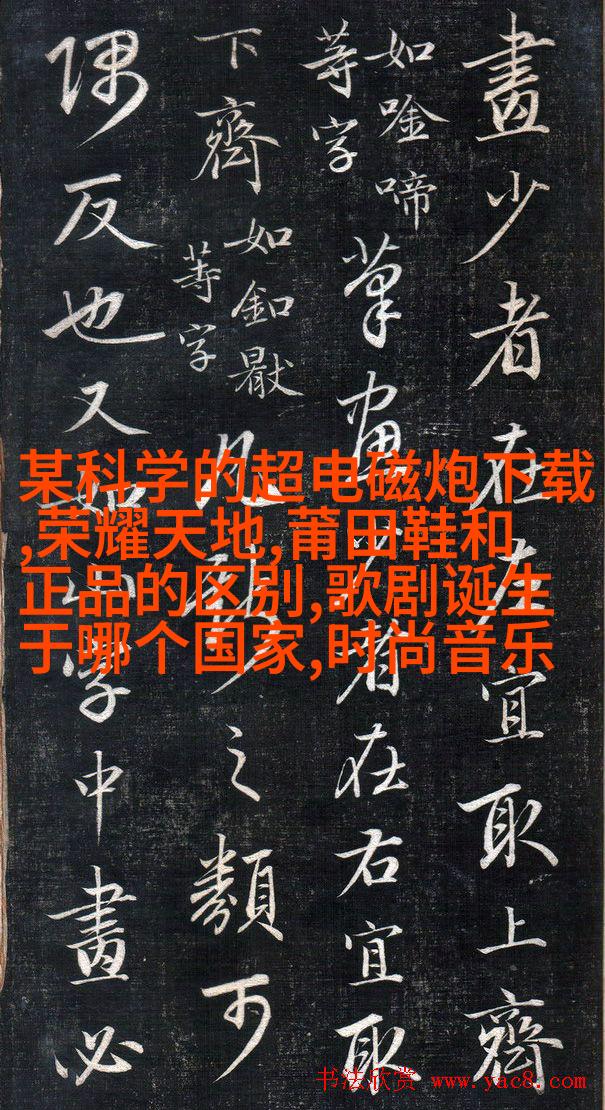 畫少者在左宜取上齊
如唫啼
等字
筆畫少者在右宜取
下齊
如釦
等字
凡之類可
隅反也又如山字中畫必
某科学的超电磁炮下载
,荣耀天地,莆田鞋和
正品的区别,歌剧诞生
于哪个国家,时尚音乐
书法欣赏 www.yac8.com